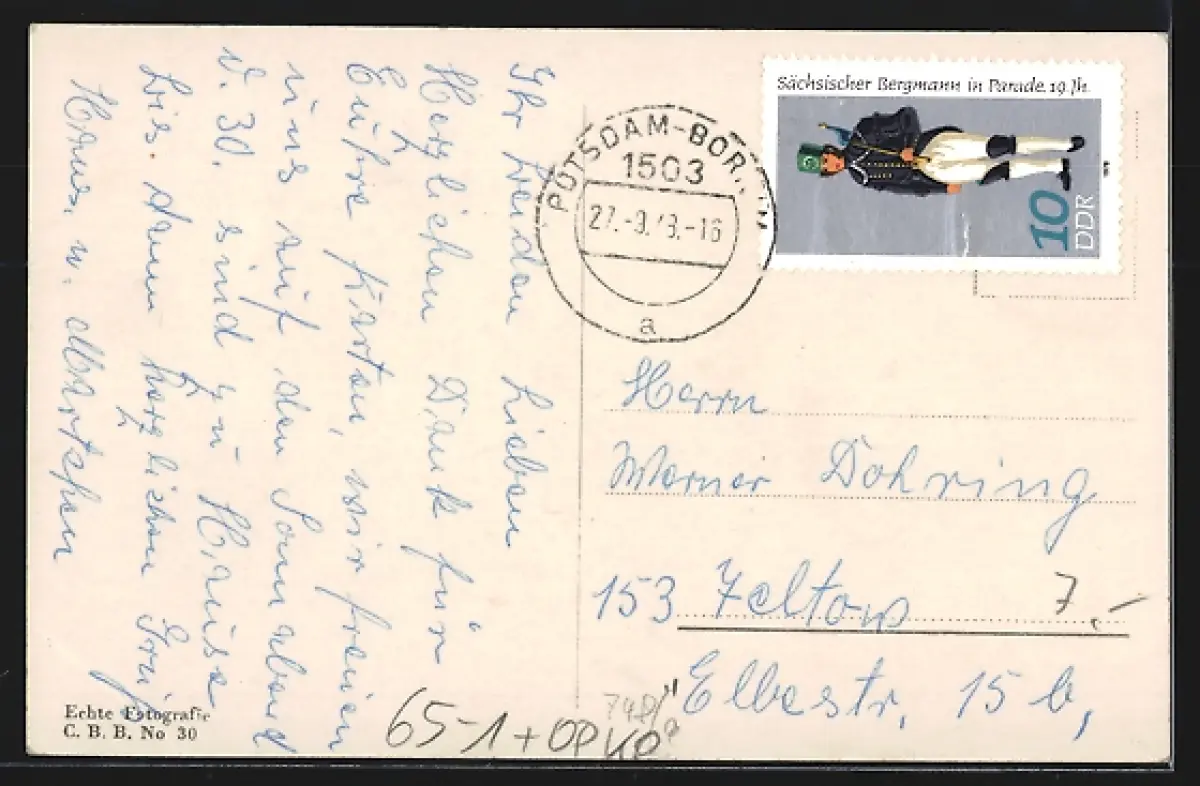 Ihr beiden Lieben
Herzlichen Dank für
Eure Karten, wir freuen
uns auf den Sonnabend
d. 30. sind zu Hause
Bis dann herzlichen Gruß
Hans u. Martchen
Echte Fotografie
C. B. B. No 30
Sächsischer Bergmann in Parade, 19. Jh.
10
DDR
POTSDAM-BOR
1503
27.-9.78.-16
a
Herrn
Werner Dohring
153 Teltow
7.-
Elbestr. 15 b,
65-1+OPKP